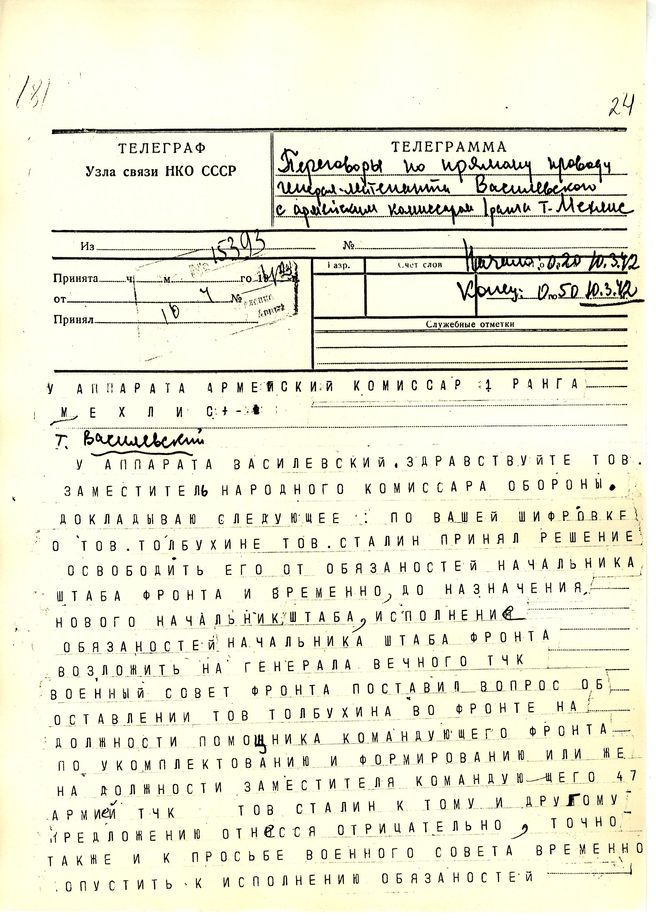 181
24
ТЕЛЕГРАФ
Узла связи НКО СССР
ТЕЛЕГРАММА
Переговоры по прямому проводу
генерал-лейтенанта Василевского
с армейским комиссаром 1 ранга т. Мехлис
Из
15393
№
Принята ч. м. го 19
от №
Принял
Разр.
Счет слов
Начало: 0.20 10.3.42
Конец: 0.50 10.3.42
Служебные отметки
У АППАРАТА АРМЕЙСКИЙ КОМИССАР 1 РАНГА
МЕХЛИС
Т. Василевский
У АППАРАТА ВАСИЛЕВСКИЙ. ЗДРАВСТВУЙТЕ ТОВ.
ЗАМЕСТИТЕЛЬ НАРОДНОГО КОМИССАРА ОБОРОНЫ.
ДОКЛАДЫВАЮ СЛЕДУЮЩЕЕ : ПО ВАШЕЙ ШИФРОВКЕ
О ТОВ. ТОЛБУХИНЕ ТОВ. СТАЛИН ПРИНЯЛ РЕШЕНИЕ
ОСВОБОДИТЬ ЕГО ОТ ОБЯЗАНОСТЕЙ НАЧАЛЬНИКА
ШТАБА ФРОНТА И ВРЕМЕННО, ДО НАЗНАЧЕНИЯ
НОВОГО НАЧАЛЬНИК ШТАБА, ИСПОЛНЕНИЕ
ОБЯЗАНОСТЕЙ НАЧАЛЬНИКА ШТАБА ФРОНТА
ВОЗЛОЖИТЬ НА ГЕНЕРАЛА ВЕЧНОГО ТЧК
ВОЕННЫЙ СОВЕТ ФРОНТА ПОСТАВИЛ ВОПРОС ОБ
ОСТАВЛЕНИИ ТОВ ТОЛБУХИНА ВО ФРОНТЕ НА
ДОЛЖНОСТИ ПОМОЩНИКА КОМАНДУЮЩЕГО ФРОНТА
ПО УКОМПЛЕКТОВАНИЮ И ФОРМИРОВАНИЮ ИЛИ ЖЕ
НА ДОЛЖНОСТИ ЗАМЕСТИТЕЛЯ КОМАНДУЮЩЕГО 47
АРМИЕЙ ТЧК ТОВ СТАЛИН К ТОМУ И ДРУГОМУ
ПРЕДЛОЖЕНИЮ ОТНЕССЯ ОТРИЦАТЕЛЬНО, ТОЧНО
ТАКЖЕ И К ПРОСЬБЕ ВОЕННОГО СОВЕТА ВРЕМЕННО
ДОПУСТИТЬ К ИСПОЛНЕНИЮ ОБЯЗАНОСТЕЙ